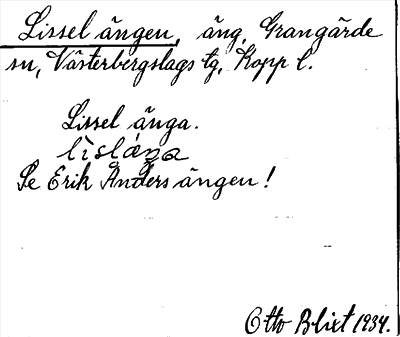 Lissel ängen, äng, Grangärde
sn, Västerbergslags tg, Kopp l.
Lissel änga.
lìslæŋa
Se Erik Anders ängen!
Otto Blixt 1934.